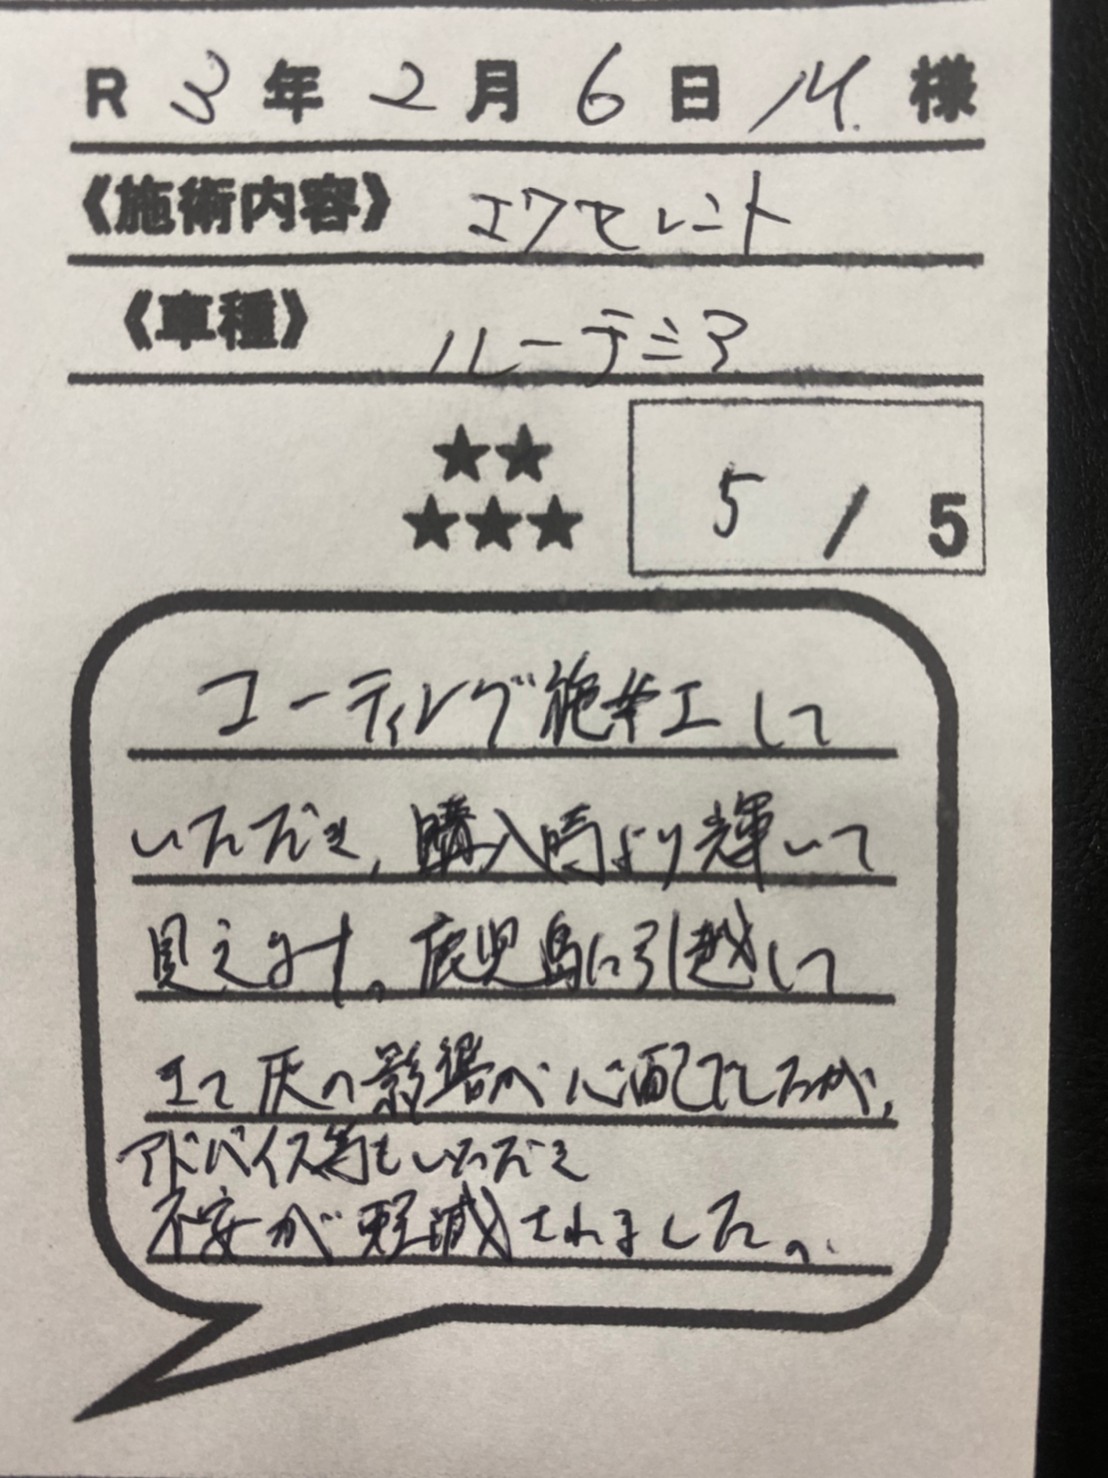 R 3年 2月 6日 M. 様
《施術内容》 エクセレント
《車種》 ルーテシア
★★
★★★ 5 / 5
コーティング施工して
いただき、購入時より輝いて
見えます。鹿児島に引越して
きて灰の影響が心配でしたが、
アドバイス等もいただき
不安が軽減されました。